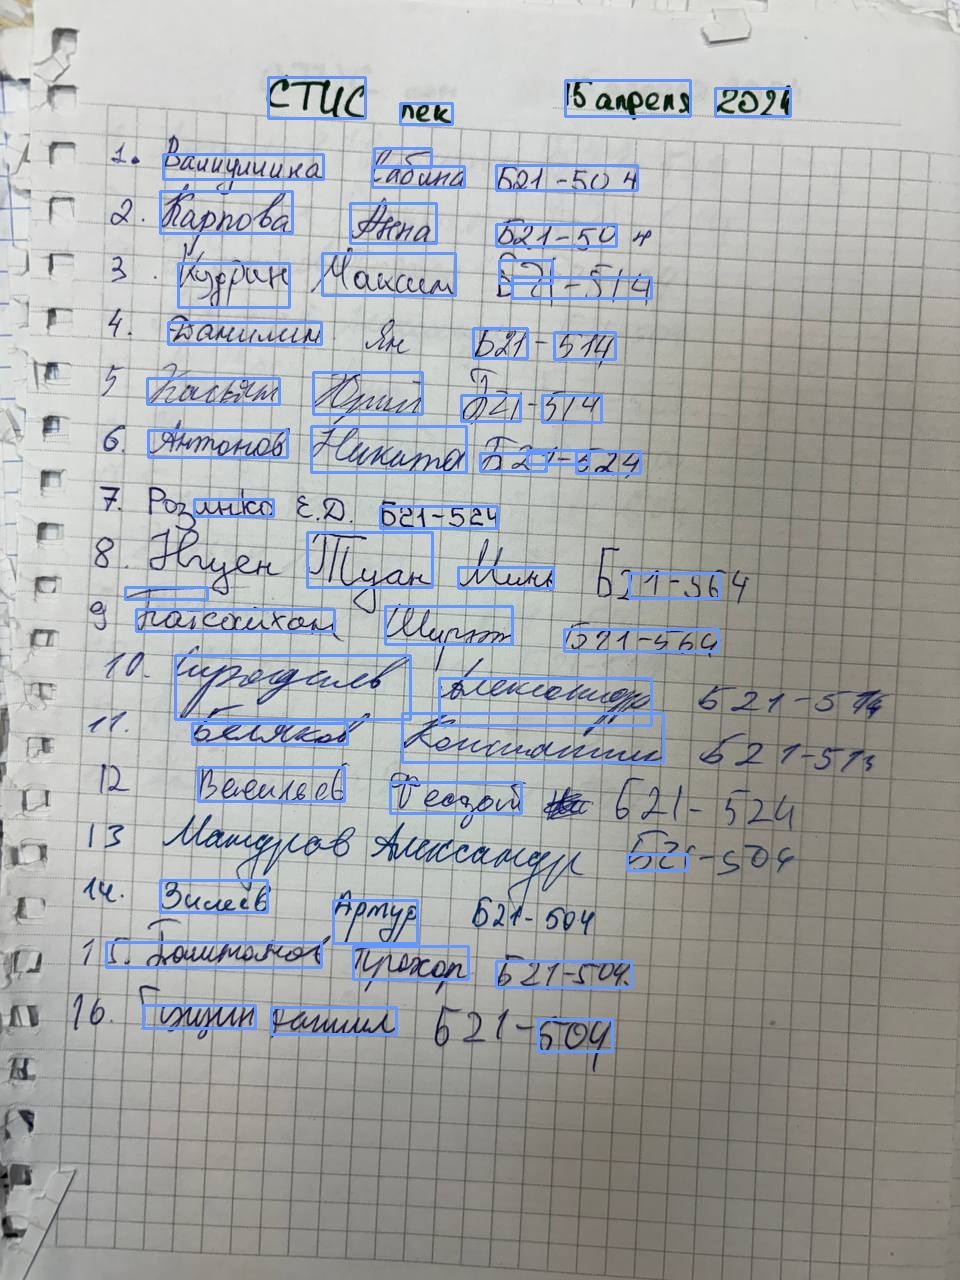 СТИС лек 15 апреля 2024
1. Валиуллина Сабина Б21-504
2. Карпова Анна Б21-504
3. Кудрин Максим Б21-514
4. Данилин Ян Б21-514
5 Касьян Юрий Б21-514
6. Антонов Никита Б21-524
7. Розинко Е.Д. Б21-524
8. Нгуен Туан Минь Б21-564
9 Батсайхан Б21-564
10. Александр Б21-514
11. Беляков Константин Б21-513
12 Васильев Б21-524
13 Александр Б21-504
14. Зилев Артур Б21-504
15. Прохор Б21-504.
16. Б21-504